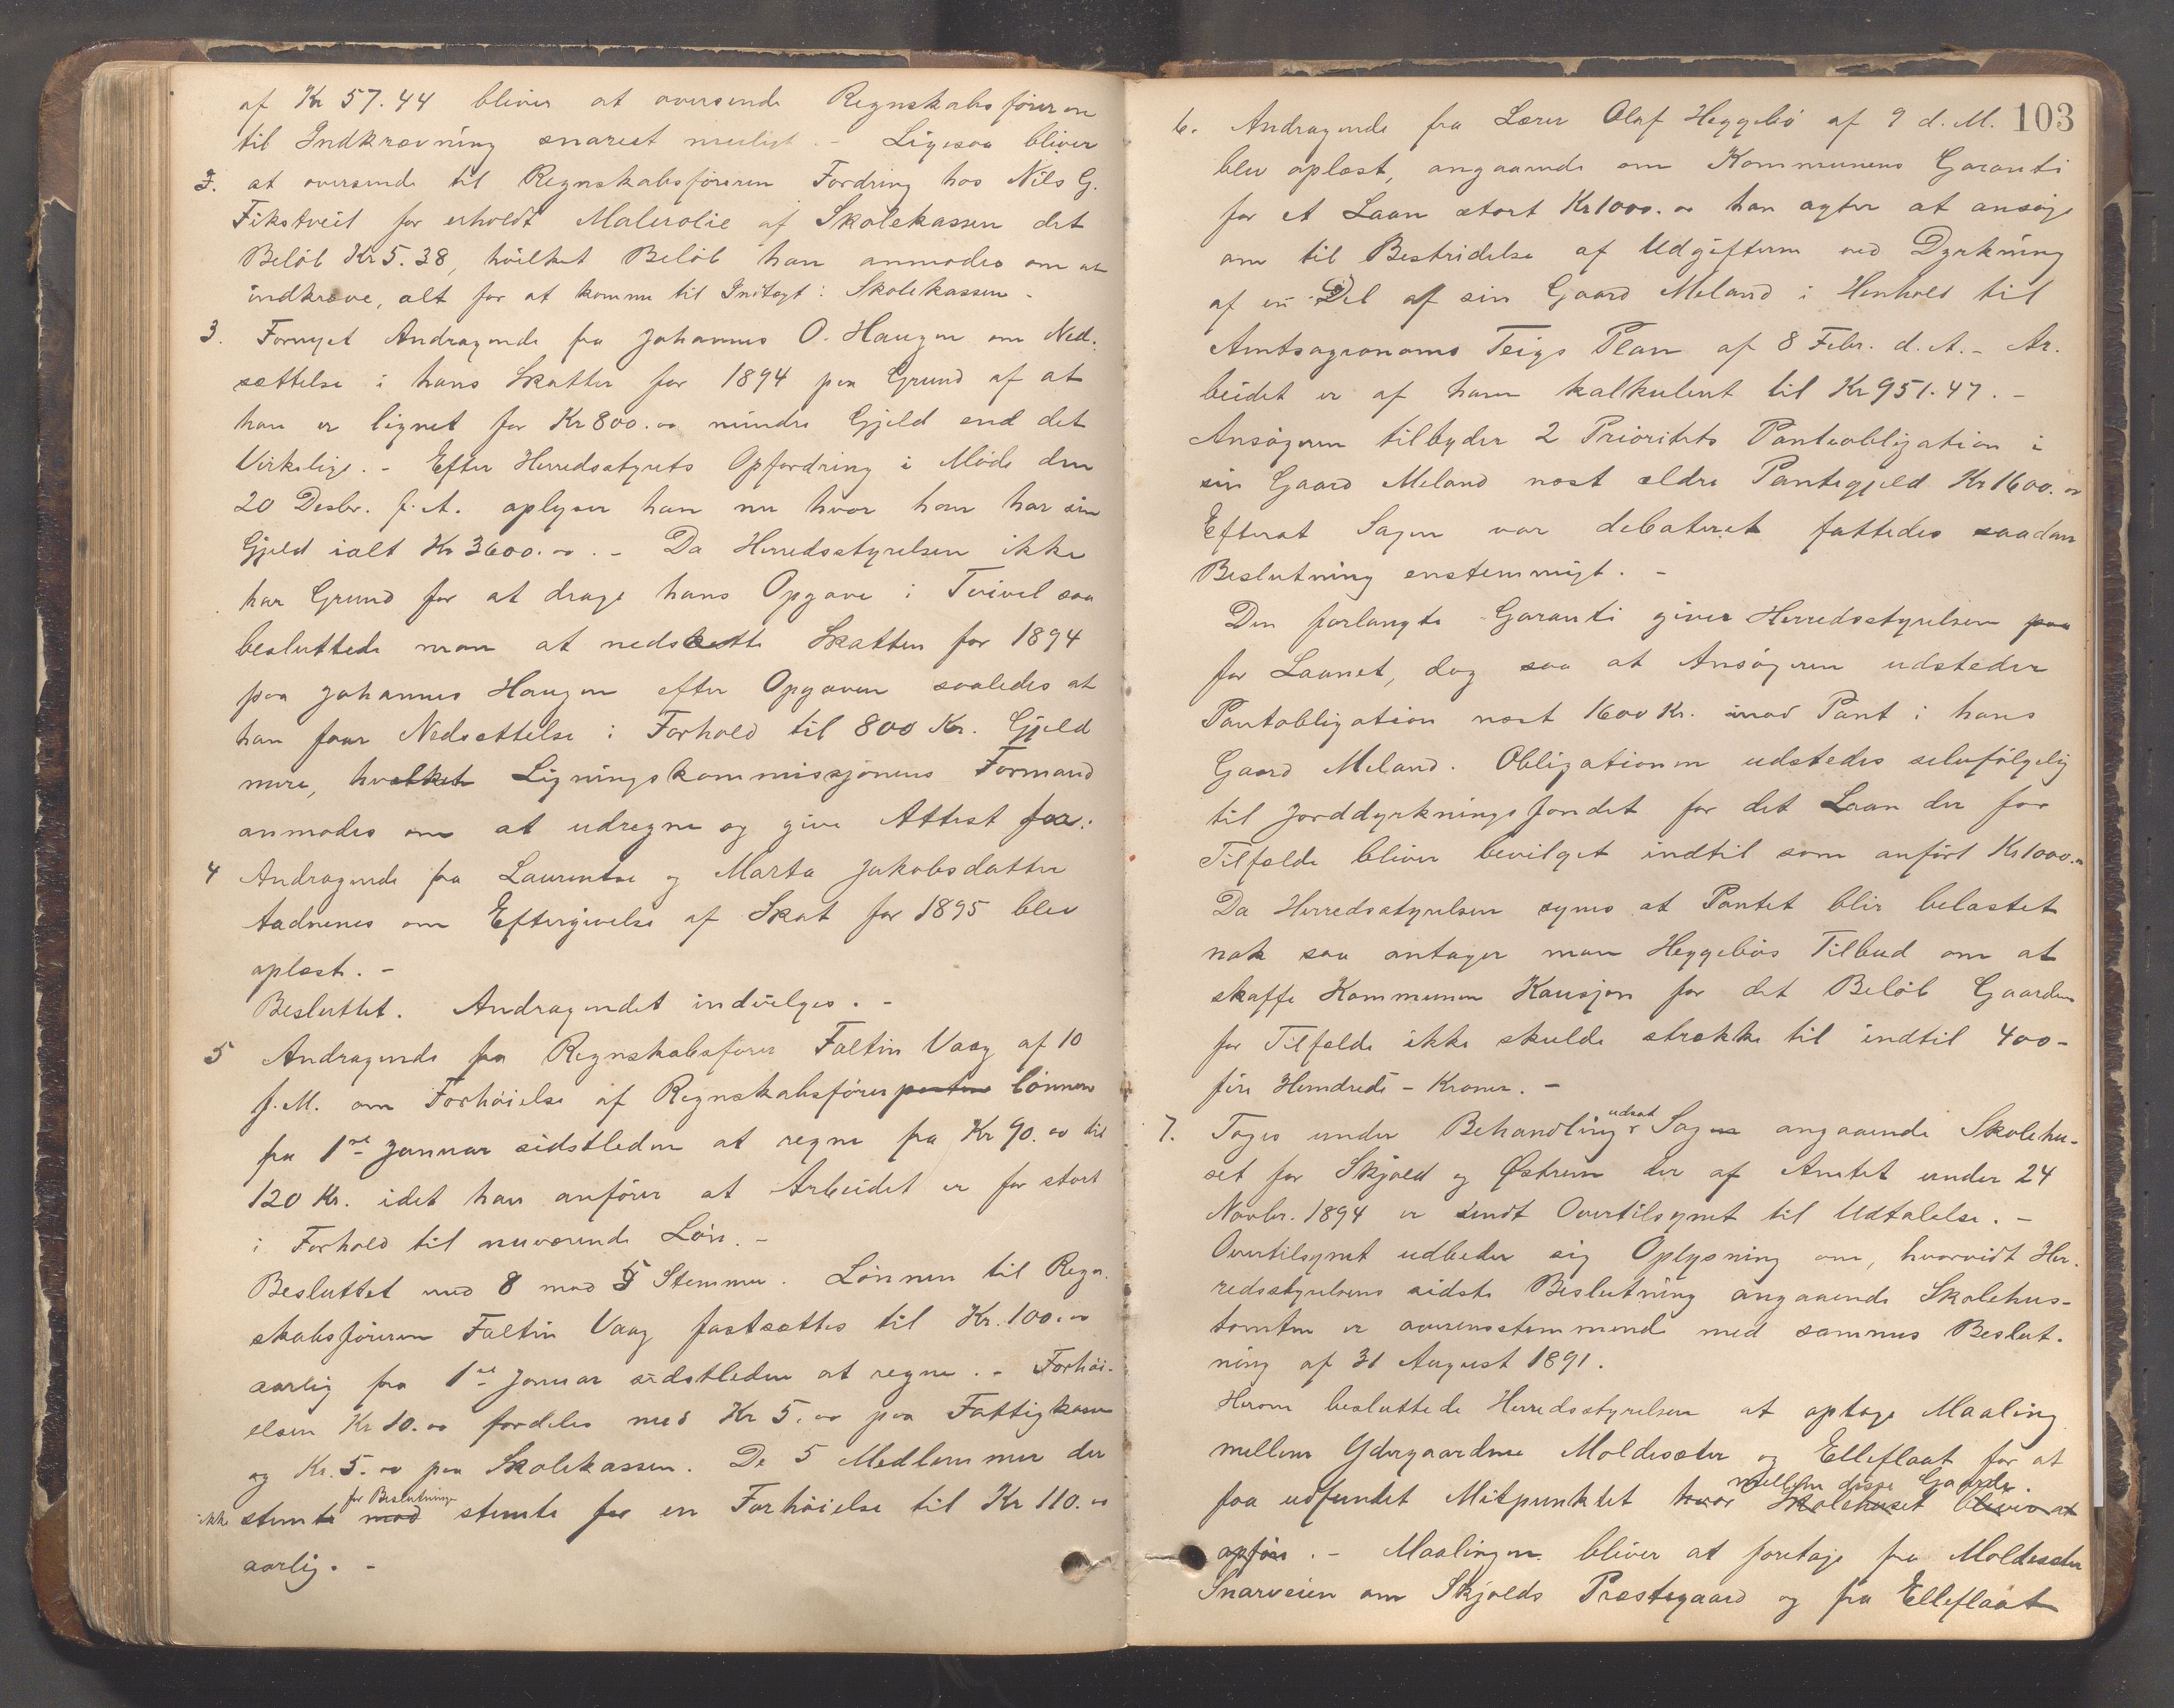 af Kr 57.44 bliver at oversende Regnskabsføreren
til Indkrævning snarest muligt. – Ligesaa bliver
3. at oversende til Regnskabsføreren Fordring hos Nils G.
Fikstveit for erholdt Malerolie af Skolekassen det
Beløb Kr 5.38, hvilket Beløb han anmodes om at
indkræve, alt for at komme til Indtægt i Skolekassen –
3. Fornyet Andragende fra Johannes O. Haugen om Ned-
sættelse i hans Skatter for 1894 paa Grund af at
han er lignet for Kr 800.00 mindre Gjeld end det
Virkelige. – Efter Herredsstyrets Opfordring i Møde den
20 Desbr. f. A. oplyser han nu hvor han har sin
Gjeld ialt Kr 3600.00. – Da Herredsstyrelsen ikke
har Grund for at drage hans Opgave i Tvivel saa
besluttede man at nedsætte Skatten for 1894
paa Johannes Haugen efter Opgaven saaledes at
han faar Nedsættelse i Forhold til 800 Kr. Gjeld
mere, hvilket Ligningskommissjonens Formand
anmodes om at udregne og give Attest for.
4 Andragende fra Laurentse og Marta Jakobsdatter
Aadnenes om Eftergivelse af Skat for 1895 blev
oplæst. –
Besluttet. Andragendet indvilges. –
5 Andragende fra Regnskabsfører Faltin Vaag af 10
f. M. om Forhøielse af Regnskabsfører lønnen
fra 1ste Januar sidstleden at regne fra Kr 90.00 til
120 Kr. idet han anfører at Arbeidet er for stort
i Forhold til nuværende Løn. –
Besluttet med 8 mod 5 Stemmer. Lønnen til Regn-
skabsføreren Faltin Vaag fastsættes til Kr. 100.00
aarlig fra 1ste Januar sidstleden at regne. – Forhøi-
elsen Kr 10.00 fordeles med Kr 5.00 paa Fattigkassen
og Kr. 5.00 paa Skolekassen. De 5 Medlemmer der
for Beslutninge
ikke stemte mod stemte for en Forhøielse til Kr 110.00
aarlig. –
103
6. Andragende fra Lærer Olaf Heggebø af 9 d. M.
blev oplæst, angaaende om Kommunens Garanti
for et Laan stort Kr 1000.00 han agter at ansøge
om til Bestridelse af Udgifterne ved Dyrkning
af en Del af sin Gaard Meland i Henhold til
Amtsagronoms Teigs Plan af 8 Febr. d. A. – Ar-
beidet er af ham kalkuleret til Kr 951.47. –
Ansøgeren tilbyder 2 Prioritets Panteobligation i
sin Gaard Meland næst ældre Pantegjeld Kr 1600.00
Efterat Sagen var debateret fattedes saadan
Beslutning enstemmigt. –
Den forlangte Garanti giver Herredsstyrelsen paa
for Laanet, dog saa at Ansøgeren udsteder
Pantobligation næst 1600 Kr. mod Pant i hans
Gaard Meland. Obligationen udstedes selvfølgelig
til Jorddyrkningsfondet for det Laan der for
Tilfælde bliver bevilget indtil som anført Kr 1000.00
Da Herredsstyrelsen synes at Pantet blir belastet
nok saa antager man Heggebøs Tilbud om at
skaffe Kommunen Kausjon for det Beløb Gaarden
for Tilfælde ikke skulde strække til indtil 400 –
fire Hundrede – Kroner. –
udsat
7. Toges under Behandling Sagen angaaende Skolehu-
set for Skjold og Østrem der af Amtet under 24
Novbr. 1894 er sendt Overtilsynet til Udtalelse. –
Overtilsynet udbeder sig Oplysning om, hvorvidt Her-
redsstyrelsens sidste Beslutning angaaende Skolehus-
tomten er overensstemmende med sammes Beslut-
ning af 31 August 1891.
Herom besluttede Herredsstyrelsen at optage Maaling
mellem Ydergaardene Moldesæter og Elleflaat for at
mellem disse Gaarde.
faa udfundet Mitpunktet hvor Skolehuset bliver at
opføre. – Maalingen bliver at foretage fra Moldesæter
Snarveien om Skjolds Præstegaard og fra Elleflaat